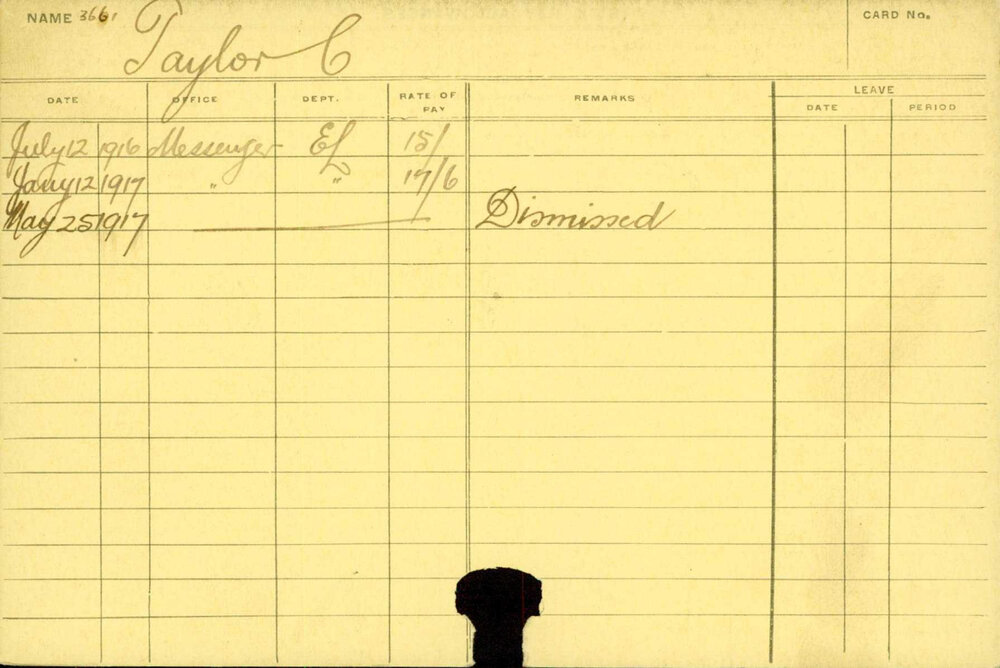 NAME 3661 CARD No.
Taylor C
DATE OFFICE DEPT. RATE OF PAY REMARKS LEAVE
DATE PERIOD
July 12 1916 Messenger 15/
Jany 12 1917 " " 17/6
May 25 1917 Dismissed